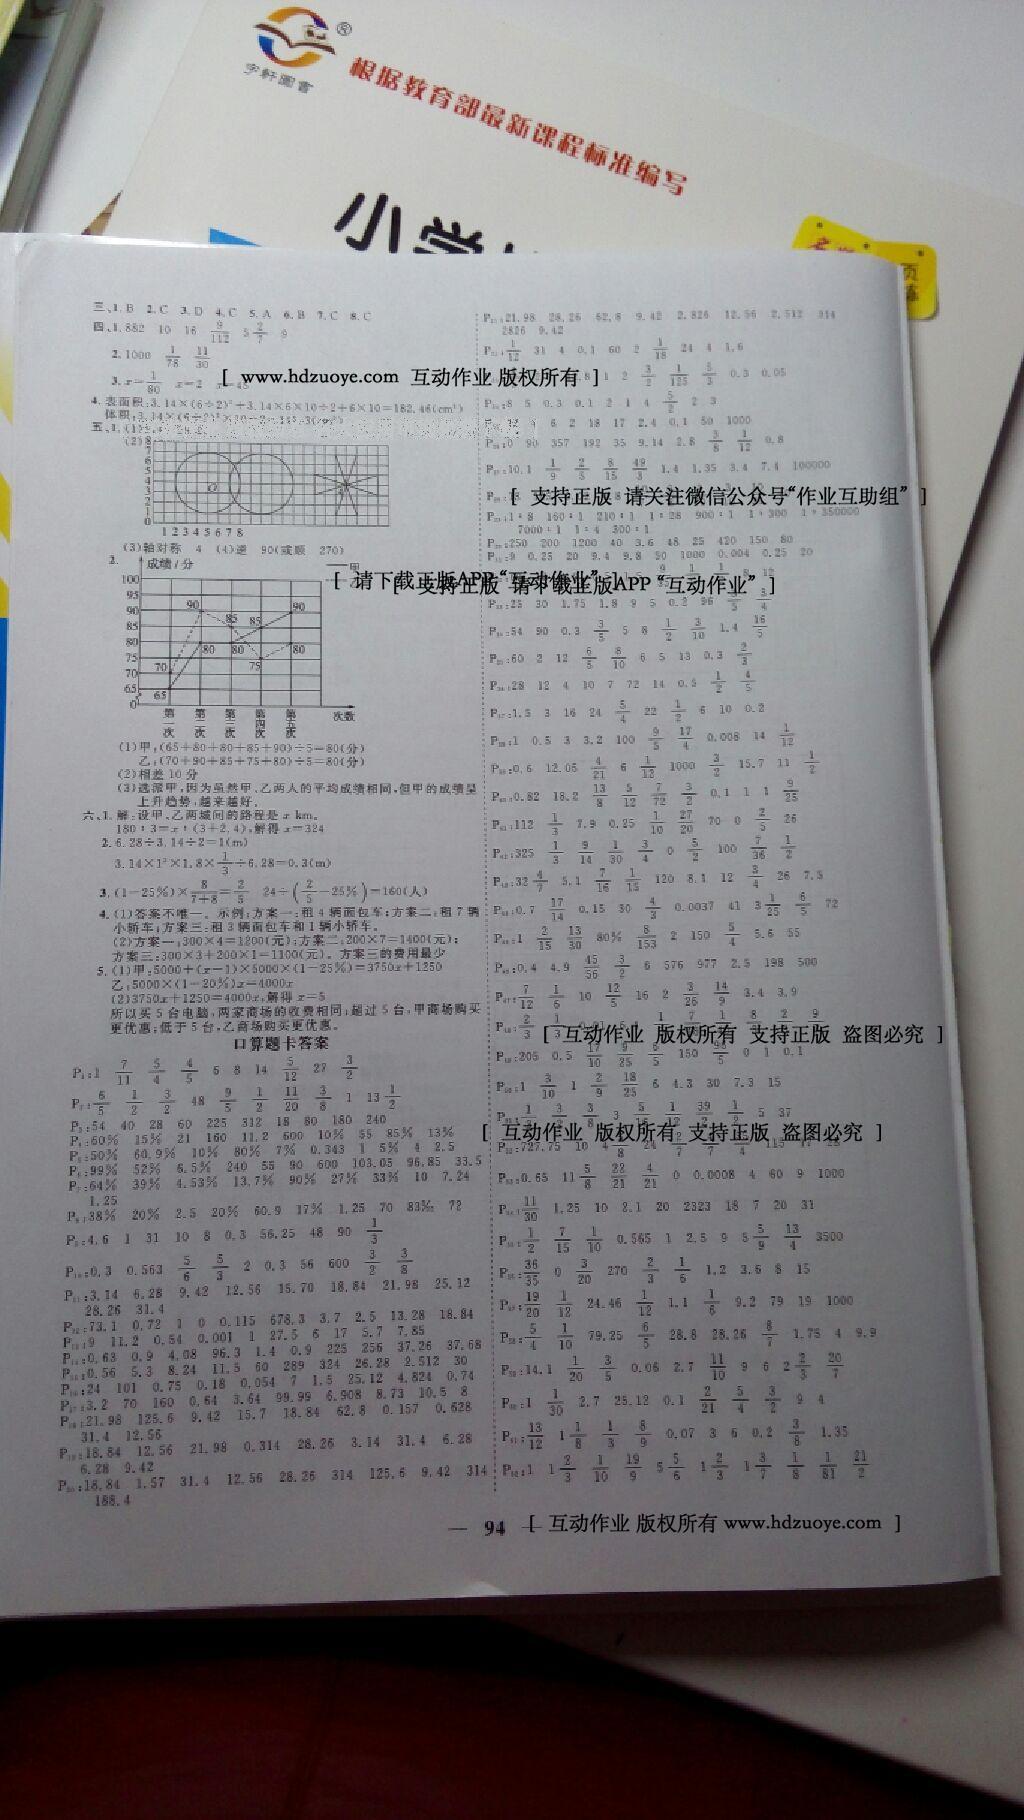 字軒圖書
®
根据教育部最新课程标准编写
小学
三、1. B 2. C 3. D 4. C 5. A 6. B 7. C 8. C
四、1. 882 10 16 9/112 5 2/7 9
2. 1000 1/78 11/30
3. x=1/80 x=2 x=45
[ www.hdzuoye.com 互动作业 版权所有 ]
4. 表面积:3.14×(6÷2)²+3.14×6×10÷2+6×10=182.46(cm²)
体积:3.14×(6÷2)²×10÷2=141.3(cm³)
(3)轴对称 4 (4)逆 90(或顺 270)
2. 成绩/分
甲
100
95
90
85
80
75
70
65
0
90 85 85 90
80 80 75 80
70
65
第一次 第二次 第三次 第四次 第五次 次数
(1)甲:(65+80+80+85+90)÷5=80(分)
乙:(70+90+85+75+80)÷5=80(分)
(2)相差10分
(3)选派甲,因为虽然甲、乙两人的平均成绩相同,但甲的成绩呈
上升趋势,越来越好。
六、1. 解:设甲、乙两城间的路程是 x km。
180:3=x:(3+2.4),解得 x=324
2. 6.28÷3.14÷2=1(m)
3.14×1²×1.8×1/3÷6.28=0.3(m)
3. (1-25%)×8/(7+8)=2/5 24÷(2/5-25%)=160(人)
4. (1)答案不唯一。示例:方案一:租4辆面包车;方案二:租7辆
小轿车;方案三:租3辆面包车和1辆小轿车。
(2)方案一:300×4=1200(元);方案二:200×7=1400(元);
方案三:300×3+200×1=1100(元)。方案三的费用最少
5. (1)甲:5000+(x-1)×5000×(1-25%)=3750x+1250
乙:5000×(1-20%)x=4000x
(2)3750x+1250=4000x,解得 x=5
所以买5台电脑,两家商场的收费相同;超过5台,甲商场购买
更优惠;低于5台,乙商场购买更优惠。
口算题卡答案
P1:1 7/11 5/4 4/5 6 8 14 5/12 27 3/2
P2:6/5 1/2 3/2 48 9/5 1/2 11/20 3/8 1 13 1/2
P3:54 40 28 60 225 312 18 80 180 240
P4:60% 15% 21 160 11.2 600 10% 55 85% 13%
P5:50% 60.9% 10% 80% 7% 0.343 1 5% 4 2.5
P6:99% 52% 6.5% 240 55 90 600 103.05 96.85 33.5
P7:64% 39% 4.53% 13.7% 90% 27% 33% 10 7.24
1.25
P8:38% 20% 2.5 20% 60.9 17% 1.25 70 83% 72
P9:4.6 1 31 10 8 0.3 56.25 48 90 1/3
P10:0.3 0.563 5/6 5/3 2 0.3 56 600 3/2 3/8
P11:3.14 6.28 9.42 12.56 15.70 18.84 21.98 25.12
28.26 31.4
P12:73.1 0.72 1 0 0.115 678.3 3.7 2.5 13.28 18.84
P13:9 11.2 0.54 0.001 1 27.5 6 17 5.7 7.85
P14:0.63 0.9 4.08 96.3 1.4 0.9 225 256 37.26 37.68
P15:0.56 5.3 8.24 11.5 60 289 324 26.28 2.512 30
P16:24 101 0.75 0.18 0.054 7 1.5 25.12 4.824 0.74
P17:3.2 70 160 0.64 3.64 99.99 6.908 8.73 10.5 8
P18:21.98 125.6 9.42 15.7 18.84 62.8 0.157 0.628
31.4 12.56
P19:18.84 12.56 21.98 0.314 28.26 3.14 31.4 6.28
6.28 9.42
P20:18.84 1.57 31.4 12.56 28.26 314 125.6 9.42 314
188.4
P21:21.98 28.26 62.8 9.42 2.826 12.56 2.512 314
2826 9.42
1/12 31 4 0.1 60 2 1/18 24 4 1.6
1 2 3/2 1/125 5/3 0.3 0.05
8 5 0.3 0.1 2 1 4 5/2 2 3
6 2 18 17 2.4 0.1 50 1000
0 90 357 192 35 9.14 2.8 3/8 1/12 0.8
10.1 1/9 2/5 8/15 49/3 1.4 1.35 3.4 7.4 100000
[ 支持正版 请关注微信公众号“作业互助组” ]
1:8 160:1 210:1 1:28 900:1 1:300 1:350000
7000:1 1:4 300:1
250 200 1200 40 3.6 48 25 420 150 80
9 0.25 20 9.4 9.8 50 1000 0.004 0.25 20
[ 请下载正版APP“互动作业” ]
[ 支持正版 请下载正版APP “互动作业” ]
25 30 1.75 1.8 9 5 0.2 96
54 90 0.3 3/5 5 8 1/2 3/10 1.4 16/5
60 2 12 6/5 8/10 6 5 13 0.3 2/3
28 12 4 10 7 72 14 0.5 1/2 4/5
1.5 3 16 24 5/4 22 1/2 6 10 0.2
1 0.5 3 3.2 100 9/5 17/4 0.008 14 1/12
0.6 12.05 4/21 6 1/12 1000 3/2 15.7 11 1/2
0.82 18.2 13/8 5/12 7/72 3/2 0.1 1 1 9/25
112 1/3 7.9 0.25 1/10 27/20 70 0 2/5 26
325 1/3 9/14 1/30 3/4 0 5/2 100 7/36 1/2
32 4/7 5.1 7/16 1/15 120 8.1 12 3/4 26 7.5
0.7 17/14 0.15 30 4/3 0.0037 41 3 1/25 6/5 72
1 2/15 13/30 80% 8/153 2 150 5/4 5.6 55
0.4 4.9 45/56 3/2 6 576 977 2.5 198 500
7/12 1/6 10 12/5 16 2 3/26 14/9 3.4 3.9
[ 互动作业 版权所有 支持正版 盗图必究 ]
205 0.5 17/10 9/25 6/5 150 0 1 0.1
1 3/10 1 2/9 18/25 6 4.3 30 7.3 15
[ 互动作业 版权所有 支持正版 盗图必究 ]
0.65 11 5/8 22/21 4/21 0 0.0008 4 60 9 1000
11/30 1.25 10 2.1 20 2323 18 7 20 31
1/2 7/15 1/10 0.565 1 2.5 9 5 5/9 13/4 3500
36/35 0 3/20 270 2/3 1/6 1.2 3.6 8 15
19/20 1/12 24.46 1/12 1.1 1/6 9.2 79 19 1000
5/4 1/10 79.25 6/5 28.8 28.26 8/7 1.75 4 9.9
14.1 1/20 3/5 0.06 2.7 11/10 9 6 2 2/3 20/7
1 1/30 2.7 25.12 0.1 2/21 5/4 3/2 9 4
13/12 1 1/8 1/3 8/9 0.07 3 6 0.2 3/8 1.35
1 1 2/3 1/10 19/9 5 5/6 1 2/3 1 3/7 1/8 1/81 21/2
— 94 —
[ 互动作业 版权所有 www.hdzuoye.com ]